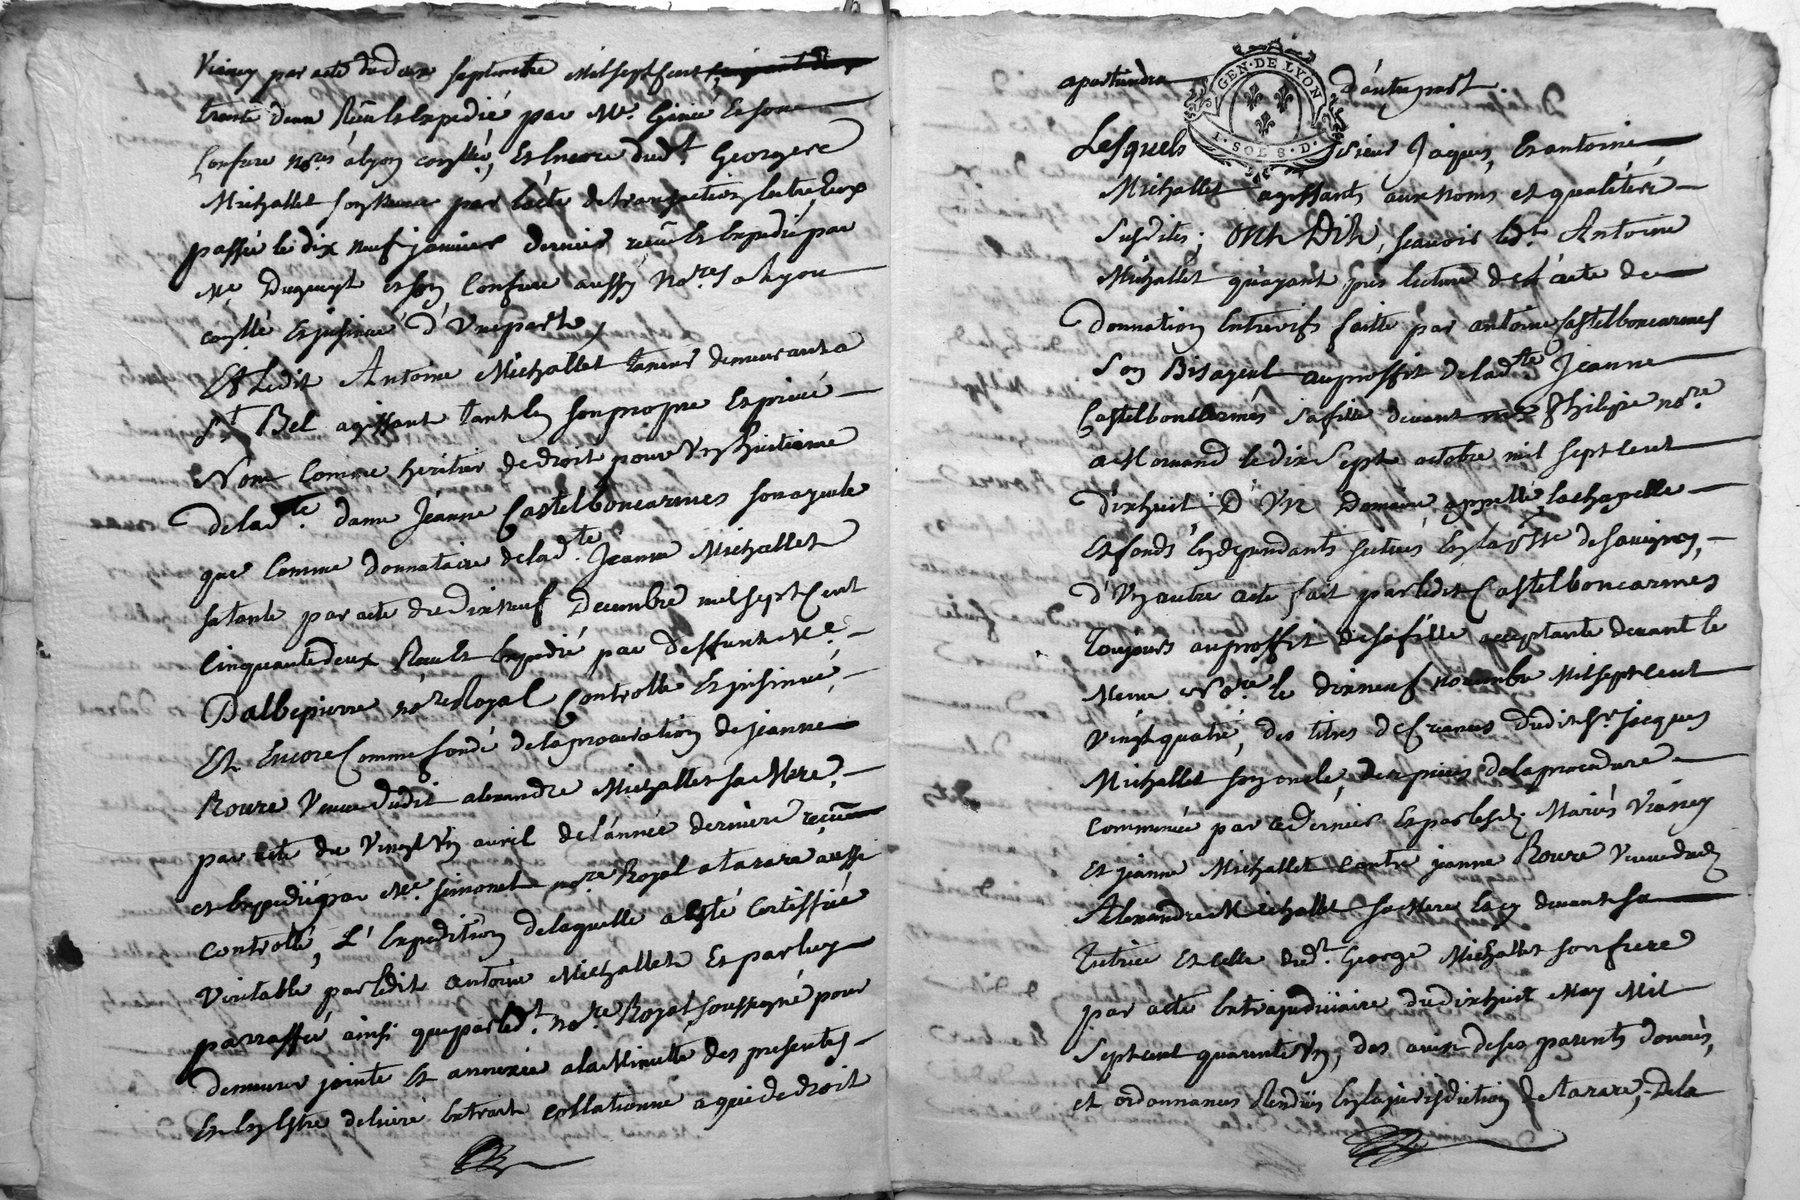 Vianey par acte du deux septembre Mil sept cent
trente deux Reçu et Expedié par Me. Ginié Et son
Confrere nores. a lyon conllé, Et Encore dudt. George
Michallet son Neveu par l'acte de transaction Entre Eux
passée le dix neuf janvier dernier reçu Et Expedié par
Me. Dugueyt et son Confrere aussy Nores a Lyon
conllé Et insinué D'Une part,
Et Ledit Antoine Michallet taneur demeurant a
St. Bel agissant tant En son propre Et privé
Nom Comme heritier de droit pour Un huitieme
de lade. dame Jeanne Castelboncarmes son ayeule
que Comme donnataire de ladte. Jeanne Michallet
sa tante par acte du dix neuf Decembre mil sept Cent
Cinquante deux Reçu Et Expedié par deffunt Me.
Dalbepierre nore Royal Controllé Et insinué,
Et Encore Comme fondé de la procuration de jeanne
Roure Veuve dudit alexandre Michallet sa Mere
par acte du Vingt Un avril de l'année derniere reçue
et Expedié par Me. simonet nore Royal a tarare aussi
Controllé, L'Expedition de laquelle a Esté Certiffiée
Veritable par ledit antoine Michallet Et par luy
parraffée ainsi que par ledt. nore. Royal soussigné pour
demeurer jointe Et annexée a la Minutte des presentes
Et En Estre delivré Extrait collationné a qui de droit
apartiendra D'autre part.
GEN. DE LYON
1. SOL 8. D.
Lesquels sieur Jaques, Et antoine
Michallet agissants aux noms et qualités
Susdites, Ont Dit, scavoir ledt. Antoine
Michallet qu'ayant pris lecture de l'acte de
donnation Entre vifs faitte par antoine Castelboncarmes
Son Bisayeul au proffit de ladte Jeanne
Castelboncarmes sa fille devant Philippe nore.
a Mornand le dix Sept octobre mil sept cent
dixhuit D'Un Domaine appellé, la chapelle
Et fonds En dependants scitués En la psse de savigny,
D'Un autre acte fait par ledit Castelboncarmes
Toujours au proffit de sa fille acceptante devant le
Meme Nore le dixneuf novembre Mil sept cent
Vingt quatre, des titres de Creances dudit Sr. jacques
Michallet son oncle, des pieces de la procedure
Commencée par ce dernier Et par lesd. Mariés Vianey
Et jeanne Michallet contre jeanne Roure Veuve dud.
Alexandre Michallet sa Mere Et cy devant sa
Tutrice Et celle dudt. George Michallet son frere
par acte Extrajudiciaire du dixhuit May Mil
Sept cent quarante Un, des avis de ses parents donnés,
et ordonnances Rendües En la jurisdiction de tarare, De la